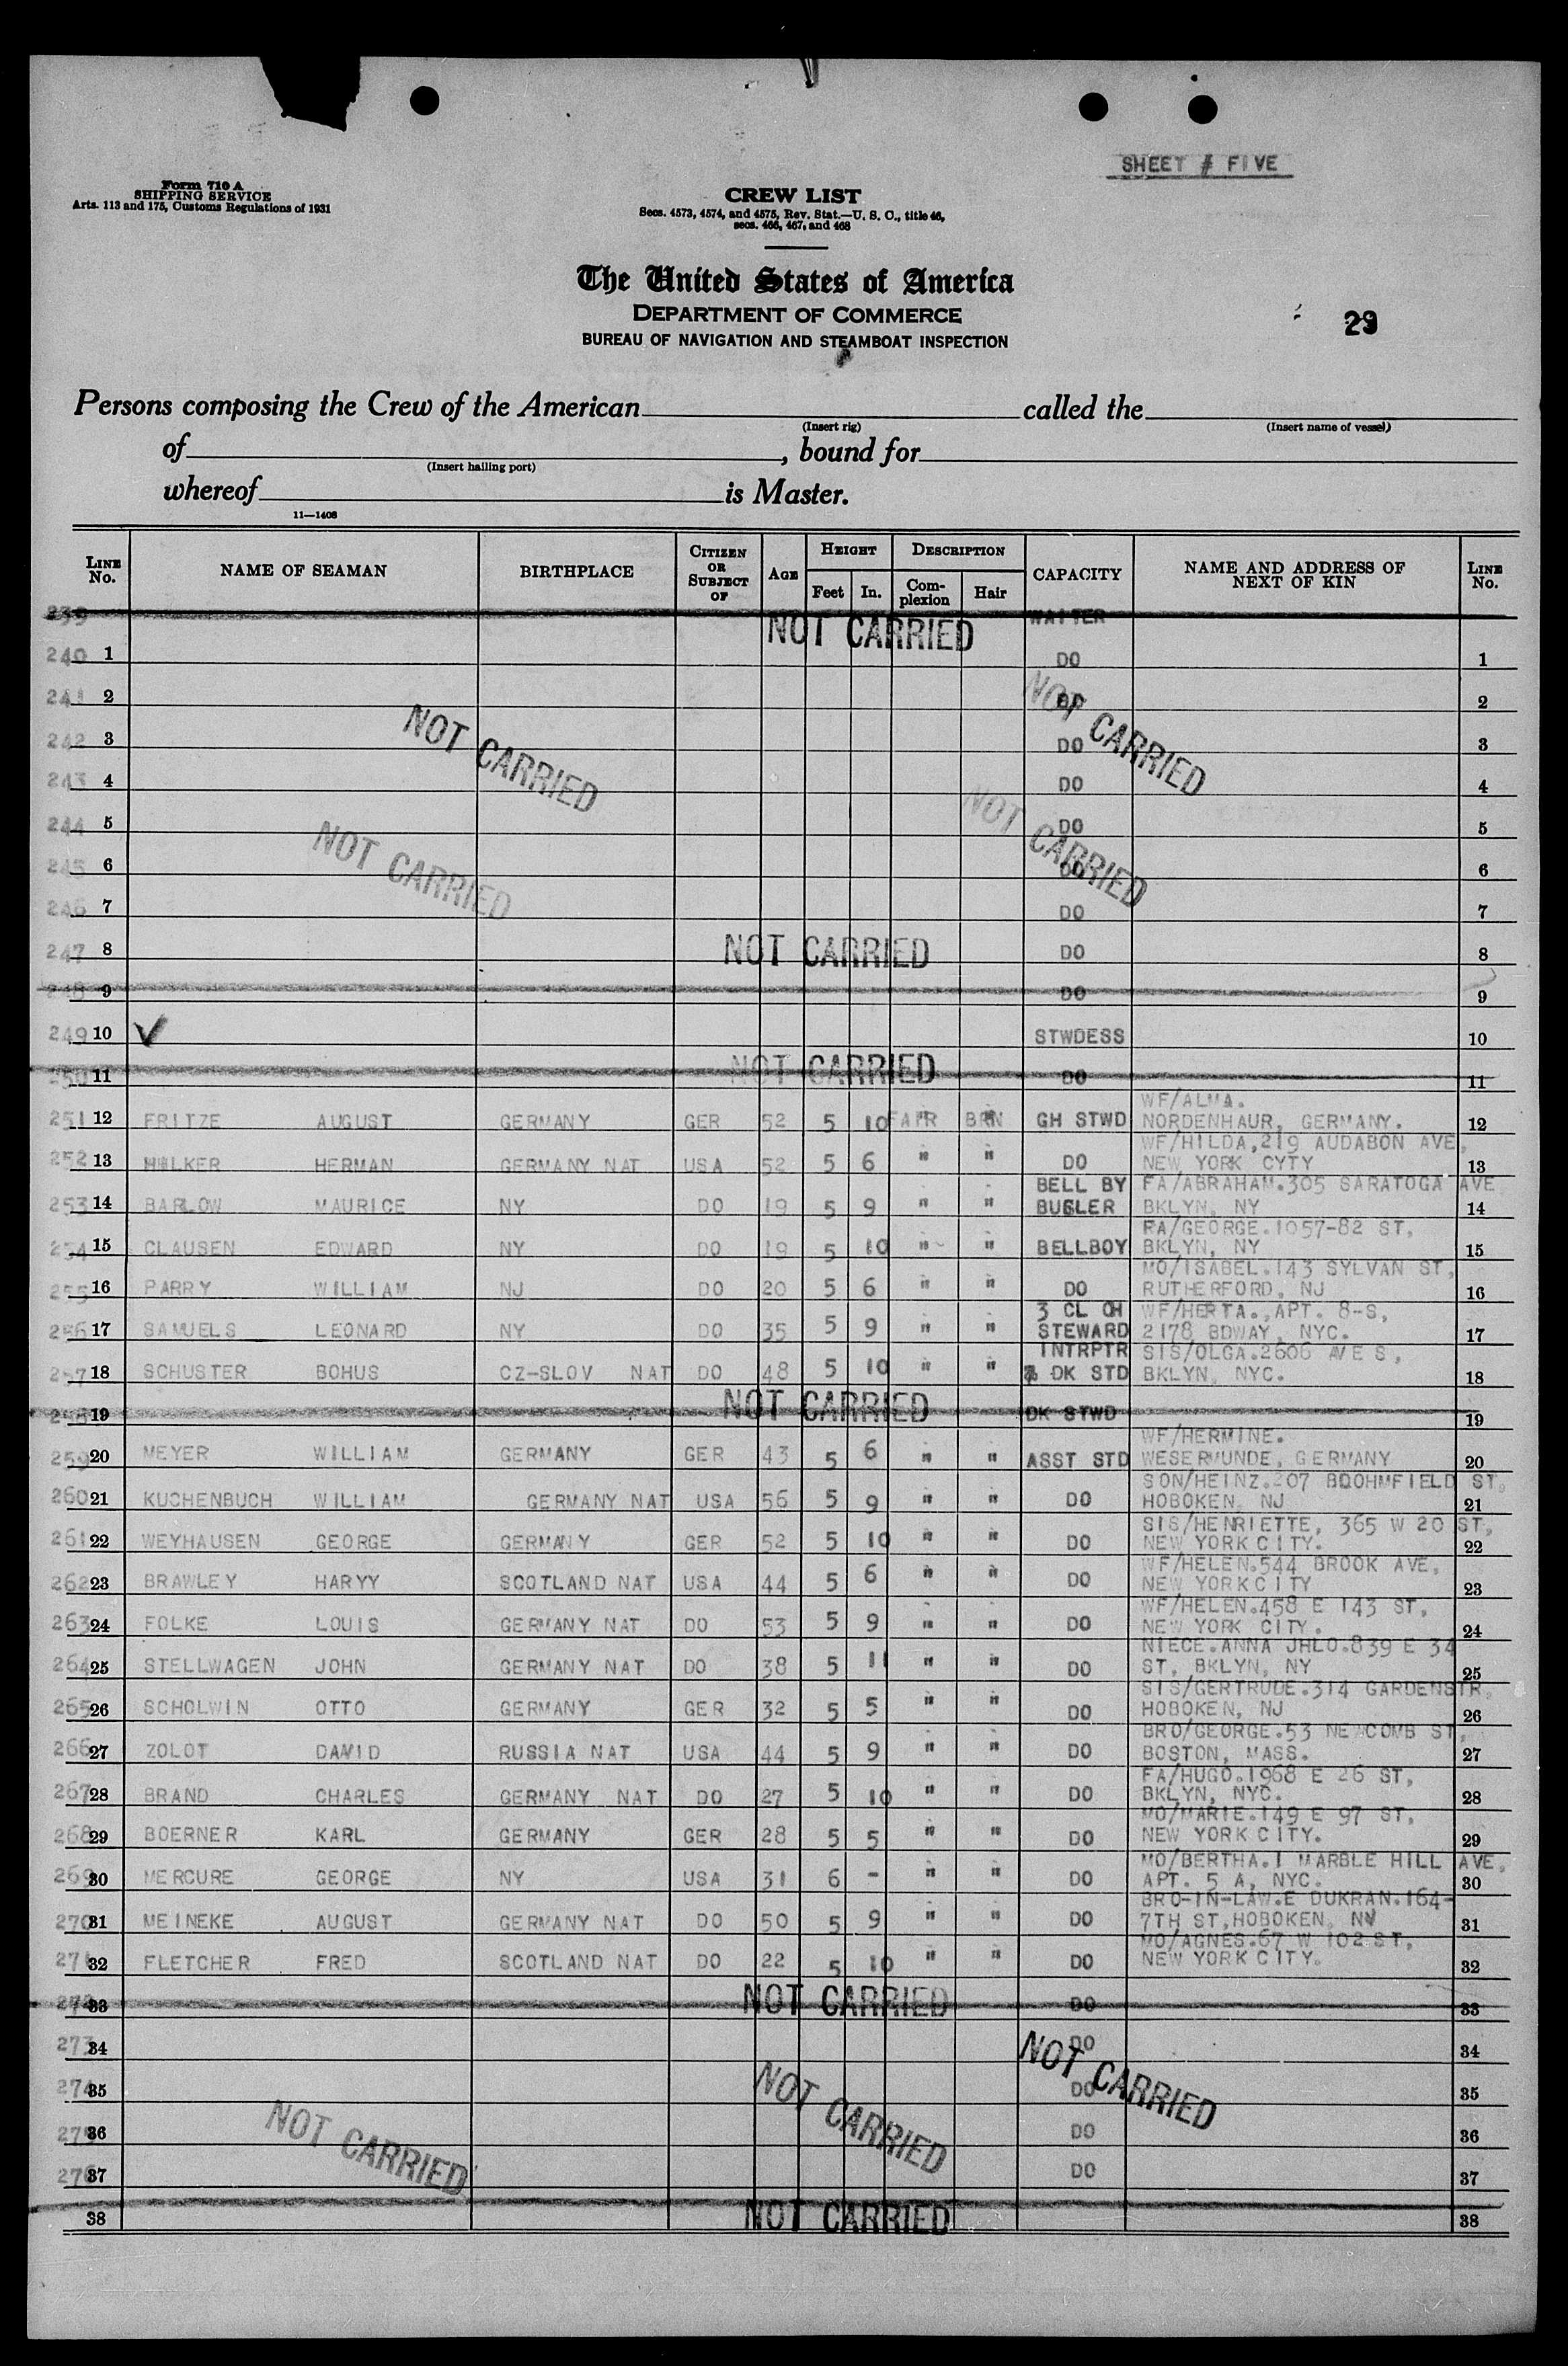 SHEET # FIVE
Form 710 A
SHIPPING SERVICE
Arts. 113 and 175, Customs Regulations of 1931
CREW LIST
Secs. 4573, 4574, and 4575, Rev. Stat.—U. S. C., title 46,
secs. 466, 467, and 468
The United States of America
DEPARTMENT OF COMMERCE
BUREAU OF NAVIGATION AND STEAMBOAT INSPECTION
29
Persons composing the Crew of the American called the
(Insert rig) (Insert name of vessel)
of , bound for
(Insert hailing port)
whereof is Master.
11—1406
LINE No. NAME OF SEAMAN BIRTHPLACE CITIZEN OR SUBJECT OF AGE HEIGHT Feet In. DESCRIPTION Complexion Hair CAPACITY NAME AND ADDRESS OF NEXT OF KIN LINE No.
239 WAITER
NOT CARRIED
240 1 DO 1
241 2 DO 2
NOT CARRIED NOT CARRIED
242 3 DO 3
243 4 DO 4
244 5 DO 5
NOT CARRIED NOT CARRIED
245 6 DO 6
246 7 DO 7
247 8 NOT CARRIED DO 8
248 9 DO 9
249 10 ✓ STWDESS 10
250 11 NOT CARRIED DO 11
WF/ALMA.
251 12 FRITZE AUGUST GERMANY GER 52 5 10 FAIR BRN GH STWD NORDENHAUR, GERMANY. 12
WF/HILDA,219 AUDABON AVE,
252 13 HOLKER HERMAN GERMANY NAT USA 52 5 6 " " DO NEW YORK CYTY 13
BELL BY FA/ABRAHAM.305 SARATOGA AVE
253 14 BARLOW MAURICE NY DO 19 5 9 " " BUGLER BKLYN, NY 14
FA/GEORGE.1057-82 ST,
254 15 CLAUSEN EDWARD NY DO 19 5 10 " " BELLBOY BKLYN, NY 15
MO/ISABEL.143 SYLVAN ST,
255 16 PARRY WILLIAM NJ DO 20 5 6 " " DO RUTHERFORD, NJ 16
3 CL CH WF/HERTA.,APT. 8-S,
256 17 SAMUELS LEONARD NY DO 35 5 9 " " STEWARD 2178 BDWAY, NYC. 17
INTRPTR SIS/OLGA.2606 AVE S,
257 18 SCHUSTER BOHUS CZ-SLOV NAT DO 48 5 10 " " & DK STD BKLYN, NYC. 18
258 19 NOT CARRIED DK STWD 19
WF/HERMINE.
259 20 MEYER WILLIAM GERMANY GER 43 5 6 " " ASST STD WESERMUNDE, GERMANY 20
SON/HEINZ.207 BLOOHMFIELD ST,
260 21 KUCHENBUCH WILLIAM GERMANY NAT USA 56 5 9 " " DO HOBOKEN, NJ 21
SIS/HENRIETTE, 365 W 20 ST,
261 22 WEYHAUSEN GEORGE GERMANY GER 52 5 10 " " DO NEW YORK CITY. 22
WF/HELEN.544 BROOK AVE,
262 23 BRAWLEY HARYY SCOTLAND NAT USA 44 5 6 " " DO NEW YORK CITY 23
WF/HELEN.458 E 143 ST,
263 24 FOLKE LOUIS GERMANY NAT DO 53 5 9 " " DO NEW YORK CITY. 24
NIECE.ANNA JHLO.839 E 34
264 25 STELLWAGEN JOHN GERMANY NAT DO 38 5 11 " " DO ST, BKLYN, NY 25
SIS/GERTRUDE.314 GARDENSTR,
265 26 SCHOLWIN OTTO GERMANY GER 32 5 5 " " DO HOBOKEN, NJ 26
BRO/GEORGE.53 NEWCOMB ST,
266 27 ZOLOT DAVID RUSSIA NAT USA 44 5 9 " " DO BOSTON, MASS. 27
FA/HUGO.1968 E 26 ST,
267 28 BRAND CHARLES GERMANY NAT DO 27 5 10 " " DO BKLYN, NYC. 28
MO/MARIE.149 E 97 ST,
268 29 BOERNER KARL GERMANY GER 28 5 5 " " DO NEW YORK CITY. 29
MO/BERTHA.1 MARBLE HILL AVE,
269 30 MERCURE GEORGE NY USA 31 6 - " " DO APT. 5 A, NYC. 30
BRO-IN-LAW.E DUKRAN.164-
270 31 MEINEKE AUGUST GERMANY NAT DO 50 5 9 " " DO 7TH ST,HOBOKEN, NJ 31
MO/AGNES.67 W 102 ST,
271 32 FLETCHER FRED SCOTLAND NAT DO 22 5 10 " " DO NEW YORK CITY. 32
272 33 NOT CARRIED DO 33
273 34 DO 34
NOT CARRIED NOT CARRIED
274 35 DO 35
275 36 NOT CARRIED DO 36
276 37 DO 37
38 NOT CARRIED 38